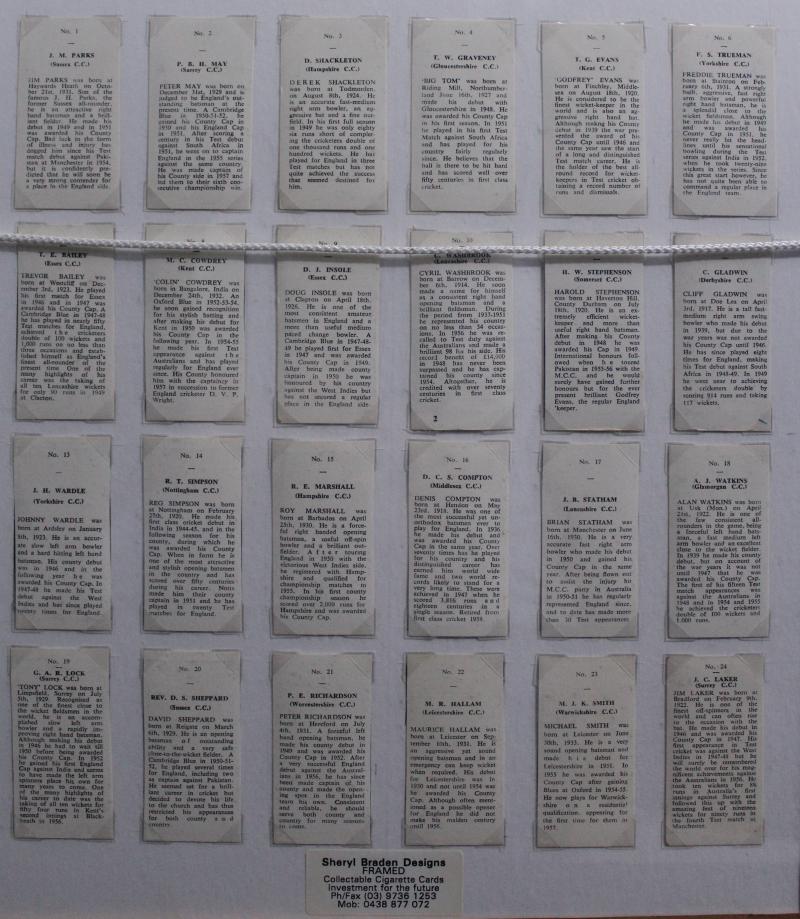 No. 1
J. M. PARKS
(Sussex C.C.)
JIM PARKS was born at
Haywards Heath on Octo-
ber 21st, 1931. Son of the
famous J. H. Parks, the
former Sussex all-rounder,
he is an attractive right
hand batsman and a brill-
iant fielder. He made his
debut in 1949 and in 1951
was awarded his County
Cap. Bad luck in the form
of illness and injury has
dogged him since his Test
match debut against Paki-
stan at Manchester in 1954,
but it is confidently pre-
dicted that he will soon be
a very strong contender for
a place in the England side.
No. 2
P. B. H. MAY
(Surrey C.C.)
PETER MAY was born on
December 31st, 1929 and is
judged to be England's out-
standing batsman at the
present time. A Cambridge
Blue in 1950-51-52, he
gained his County Cap in
1950 and his England Cap
in 1951. After scoring a
century in his Test debut
against South Africa in
1951, he went on to captain
England in the 1955 series
against the same country.
He was made captain of
his County side in 1957 and
led them to their sixth con-
secutive championship win.
No. 3
D. SHACKLETON
(Hampshire C.C.)
DEREK SHACKLETON
was born at Todmorden,
on August 8th, 1924. He
is an accurate fast-medium
right arm bowler, an ag-
gressive bat and a fine out-
fielder. In his first full season
in 1949 he was only eighty
six runs short of complet-
ing the cricketers double of
one thousand runs and one
hundred wickets. He has
played for England in three
Test matches but has not
quite achieved the success
that seemed destined for
him.
No. 4
T. W. GRAVENEY
(Gloucestershire C.C.)
'BIG TOM' was born at
Riding Mill, Northumber-
land on June 16th, 1927 and
made his debut with
Gloucestershire in 1948. He
was awarded his County Cap
in his first season. In 1951
he played in his first Test
Match against South Africa
and has played for his
country fairly regularly
since. He believes that the
ball is there to be hit hard
and has scored well over
fifty centuries in first class
cricket.
No. 5
T. G. EVANS
(Kent C.C.)
'GODFREY' EVANS was
born at Finchley, Middle-
sex on August 18th, 1920.
He is considered to be the
finest wicket-keeper in the
world and is also an ag-
gressive right hand bat.
Although making his County
debut in 1939 the war pre-
vented the award of his
County Cap until 1946 and
the same year saw the start
of a long and distinguished
Test match career. He is
the folder of the best all
round record for wicket-
keepers in Test cricket ob-
taining a record number of
runs and dismissals.
No. 6
F. S. TRUEMAN
(Yorkshire C.C.)
FREDDIE TRUEMAN was
born at Stainton on Feb-
ruary 6th, 1931. A strongly
built, aggressive, fast right
arm bowler and powerful
right hand batsman, he is
a splendid close to the
wicket fieldsman. Although
he made his debut in 1949
and was awarded his
County Cap in 1951, he
never really hit the head-
lines until his sensational
bowling during the Test
series against India in 1952,
when he took twenty-nine
wickets in the series. Since
this great start however, he
has not quite been able to
command a regular place in
the England team.
T. E. BAILEY
(Essex C.C.)
TREVOR BAILEY was
born at Westcliff on Dec-
ember 3rd, 1923. He played
his first match for Essex
in 1946 and in 1947 was
awarded his County Cap. A
Cambridge Blue in 1947-48
he has played in nearly fifty
Test matches for England,
achieved the cricketers
double of 100 wickets and
1,000 runs on no less than
three occasions and estab-
lished himself as England's
finest all-rounder of the
present time. One of the
many highlights of his
career was the taking of
all ten Lancashire wickets
for only 90 runs in 1949
at Clacton.
M. C. COWDREY
(Kent C.C.)
'COLIN' COWDREY was
born in Bangalore, India on
December 24th, 1932. An
Oxford Blue in 1952-53-54,
he soon gained recognition
for his stylish batting and
after making his debut for
Kent in 1950 was awarded
his County Cap in the
following year. In 1954-55
he made his first Test
appearance against the
Australians and has played
regularly for England ever
since. His County honoured
him with the captaincy in
1957 in succession to former
England cricketer D. V. P.
Wright.
No. 9
D. J. INSOLE
(Essex C.C.)
DOUG INSOLE was born
at Clapton on April 18th,
1926. He is one of the most
consistent amateur
batsmen in England and a
more than useful medium
paced change bowler. A
Cambridge Blue in 1947-48-
49 he played first for Essex
in 1947 and was awarded
his County Cap in 1949.
After being made county
captain in 1950 he was
honoured by his country
against the West Indies but
has not secured a regular
place in the England side.
No. 10
C. WASHBROOK
(Lancashire C.C.)
CYRIL WASHBROOK was
born at Barrow on Decem-
ber 6th, 1914. He soon
made a name for himself
as a consistent right hand
opening batsman and a
brilliant fieldsman. During
the period from 1935-1951
he represented his country
on no less than 34 occas-
ions. In 1956 he was re-
called to Test duty against
the Australians and made a
brilliant 98 for his side. His
record benefit of £14,000
in 1948 has never been
surpassed and he has cap-
tained his county since
1954. Altogether, he is
credited with over seventy
centuries in first class
cricket.
2
H. W. STEPHENSON
(Somerset C.C.)
HAROLD STEPHENSON
was born at Haverton Hill,
County Durham on July
18th, 1920. He is an ex-
tremely efficient wicket-
keeper and more than
useful right hand batsman.
After making his County
debut in 1948 he was
awarded his Cap in 1949.
International honours foll-
owed when he toured
Pakistan in 1955-56 with the
M.C.C. and he would
surely have gained further
honours but for the ever
present brilliant Godfrey
Evans, the regular England
'keeper.
C. GLADWIN
(Derbyshire C.C.)
CLIFF GLADWIN was
born at Doe Lea on April
3rd, 1917. He is a tall fast-
medium right arm swing
bowler who made his debut
in 1939, but due to the
war years was not awarded
his County Cap until 1946.
He has since played eight
times for England, making
his Test debut against South
Africa in 1948-49. In 1949
he went near to achieving
the cricketers double by
scoring 914 runs and taking
117 wickets.
No. 13
J. H. WARDLE
(Yorkshire C.C.)
JOHNNY WARDLE was
born at Ardsley on January
8th, 1923. He is an accur-
ate slow left arm bowler
and a hard hitting left hand
batsman. His county debut
was in 1946 and in the
following year he was
awarded his County Cap. In
1947-48 he made his Test
debut against the West
Indies and has since played
twenty times for England.
No. 14
R. T. SIMPSON
(Nottingham C.C.)
REG SIMPSON was born
at Nottingham on February
27th, 1920. He made his
first class cricket debut in
India in 1944-45, and in the
following season for his
county, during which he
was awarded his County
Cap. When in form he is
one of the most attractive
and stylish opening batsmen
in the country and has
scored over fifty centuries
during his career. Notts
made him their county
captain in 1951 and he has
played in twenty Test
matches for England.
No. 15
R. E. MARSHALL
(Hampshire C.C.)
ROY MARSHALL was
born at Barbados on April
25th, 1930. He is a force-
ful right handed opening
batsman, a useful off-spin
bowler and a brilliant out-
fielder. After touring
England in 1950 with the
victorious West Indies side,
he registered with Hamp-
shire and qualified for
championship matches in
1955. In his first county
championship season he
scored over 2,000 runs for
Hampshire and was awarded
his County Cap.
No. 16
D. C. S. COMPTON
(Middlesex C.C.)
DENIS COMPTON was
born at Hendon on May
23rd, 1918. He was one of
the most successful yet un-
orthodox batsmen ever to
play for England. In 1936
he made his debut and
was awarded his County
Cap in the same year. Over
seventy caps he has played
for his country and his
distinguished career has
earned him world wide
fame and two world re-
cords likely to stand for a
very long time. These were
achieved in 1947 when he
scored 3,816 runs and
eighteen centuries in a
single season. Retired from
first class cricket 1958.
No. 17
J. B. STATHAM
(Lancashire C.C.)
BRIAN STATHAM was
born at Manchester on June
16th, 1930. He is a very
accurate fast right arm
bowler who made his debut
in 1950 and gained his
County Cap in the same
year. After being flown out
to assist the injury hit
M.C.C. party in Australia
in 1950-51 he has regularly
represented England since,
and to date has made more
than 30 Test appearances.
No. 18
A. J. WATKINS
(Glamorgan C.C.)
ALAN WATKINS was born
at Usk (Mon.) on April
21st, 1922. He is one of
the few consistent all-
rounders in the game, being
a forceful left hand bats-
man, a fast medium left
arm bowler and an excellent
close to the wicket fielder.
In 1939 he made his county
debut, but on account of
the war years it was not
until 1947 that he was
awarded his County Cap.
The first of his fifteen Test
match appearances was
against the Australians in
1948 and in 1954 and 1955
he achieved the cricketers
double of 100 wickets and
1,000 runs.
No. 19
G. A. R. LOCK
(Surrey C.C.)
'TONY' LOCK was born at
Limpsfield, Surrey on July
5th, 1929. Recognised as
one of the finest close to
the wicket fieldsmen in the
world, he is an accom-
plished slow left arm
bowler and a rapidly im-
proving right hand batsman.
Although making his debut
in 1946 he had to wait till
1950 before being awarded
his County Cap. In 1952
he gained his first England
Cap against India and seems
to have made the left arm
spinners place his own for
many years to come. One
of the many highlights of
his career to date was the
taking of all ten wickets for
fifty four runs in Kent's
second innings at Black-
heath in 1956.
No. 20
REV. D. S. SHEPPARD
(Sussex C.C.)
DAVID SHEPPARD was
born at Reigate on March
6th, 1929. He is an opening
batsman of outstanding
ability and a very safe
close-to-the-wicket fielder. A
Cambridge Blue in 1950-51-
52, he played several times
for England, including two
as captain against Pakistan.
He seemed set for a brill-
iant career in cricket but
decided to devote his life
to the church and has thus
restricted his appearances
for both county and
country.
No. 21
P. E. RICHARDSON
(Worcestershire C.C.)
PETER RICHARDSON was
born at Hereford on July
4th, 1931. A forceful left
hand opening batsman, he
made his county debut in
1949 and was awarded his
County Cap in 1952. After
a very successful England
debut against the Austral-
ians in 1956, he has since
been made captain of his
county and made the open-
ing spot in the England
team his own. Consistent
and reliable, he should
serve both county and
country for many seasons
to come.
No. 22
M. R. HALLAM
(Leicestershire C.C.)
MAURICE HALLAM was
born at Leicester on Sep-
tember 10th, 1931. He is
an aggressive yet sound
opening batsman and in an
emergency can keep wicket
when required. His debut
for Leicestershire was in
1950 and not until 1954 was
he awarded his County
Cap. Although often ment-
ioned as a possible opener
for England he did not
make his maiden century
until 1956.
No. 23
M. J. K. SMITH
(Warwickshire C.C.)
MICHAEL SMITH was
born at Leicester on June
30th, 1933. He is a very
sound opening batsman and
made his debut for
Leicestershire in 1951. In
1955 he was awarded his
County Cap after gaining
Blues at Oxford in 1954-55.
He now plays for Warwick-
shire on a residential
qualification, appearing for
the first time for them in
1957.
No. 24
J. C. LAKER
(Surrey C.C.)
JIM LAKER was born at
Bradford on February 9th,
1922. He is one of the
finest off-spinners in the
world and can often rise
to the occasion with the
bat. He made his debut in
1946 and was awarded his
County Cap in 1947. His
first appearance in Test
cricket was against the West
Indies in 1947-48 but he
will surely be remembered
the world over for his mag-
nificent achievements against
the Australians in 1956. He
took ten wickets for 88
runs in Australia's first
innings against Surrey and
followed this up with the
amazing feat of nineteen
wickets for ninety runs in
the fourth Test match at
Manchester.
Sheryl Braden Designs
FRAMED
Collectable Cigarette Cards
Investment for the future
Ph/Fax (03) 9736 1253
Mob: 0438 877 072